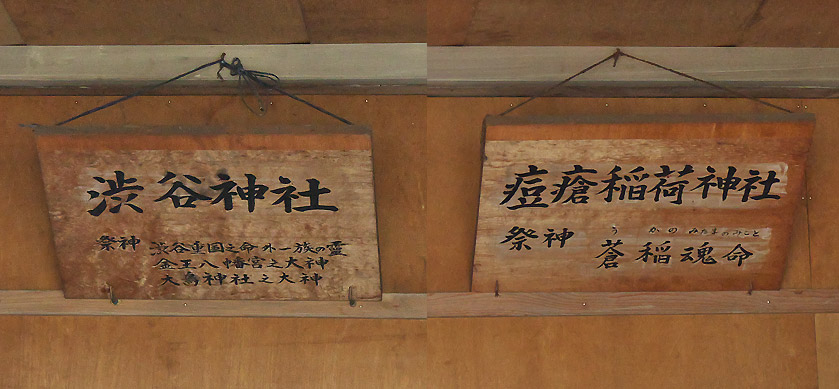 渋谷神社
祭神 渋谷重国之命外一族の霊
金王八幡宮之大神
大鳥神社之大神
痘瘡稲荷神社
うかのみたまのみこと
祭神 蒼稲魂命